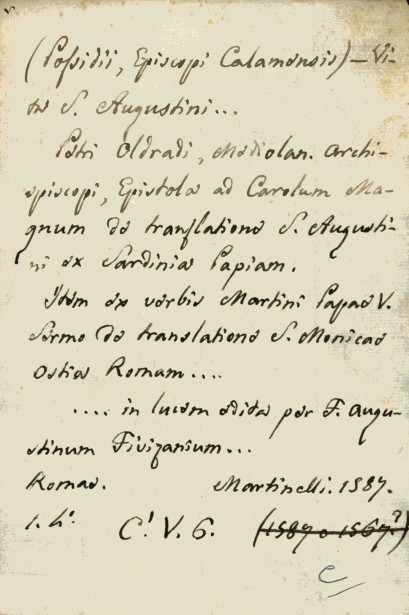 (Possidii, Episcopi Calamensis) – Vi-
ta S. Augustini...
Petri Oldradi, Mediolan. archi-
episcopi, Epistola ad Carolum Ma-
gnum de translatione S. Augusti-
ni ex Sardinia Papiam.
Item ex verbis Martini Papae V.
Sermo de translatione S. Monicae
Ostia Romam....
.... in lucem edita per F. Augu-
stinum Fivizanium...
Romae. Martinelli. 1587.
C! V. 6. (1587 o 1567?)